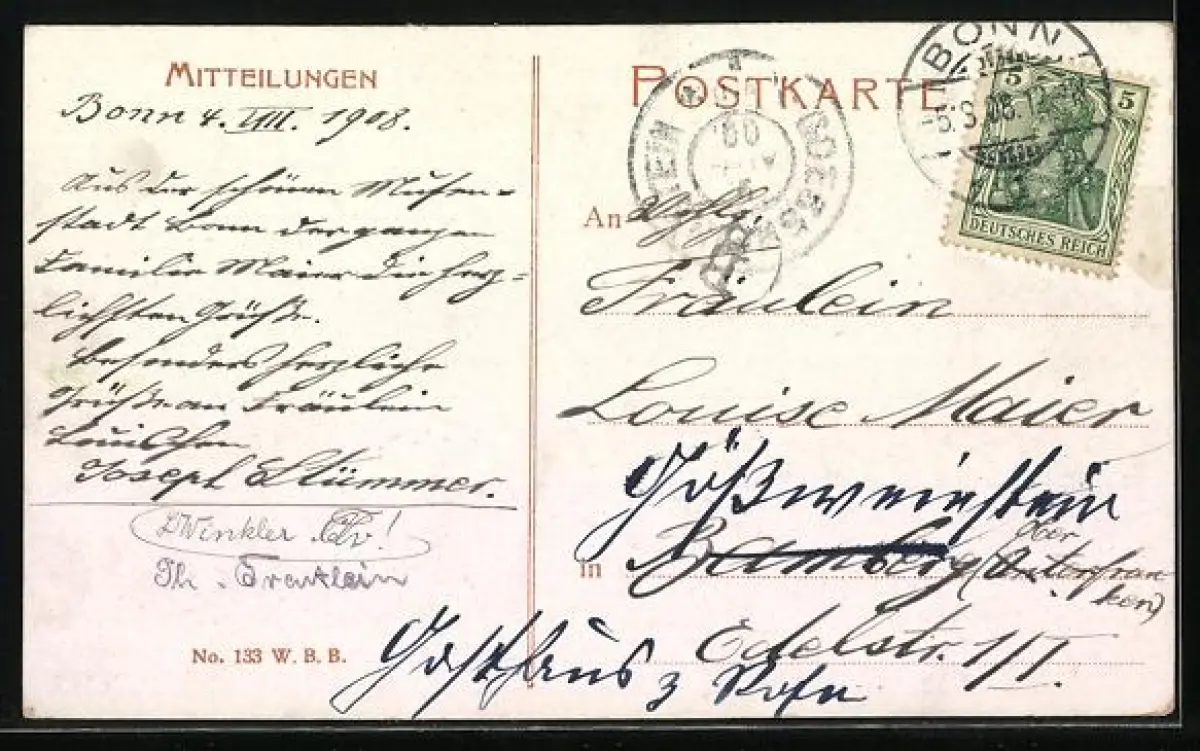 MITTEILUNGEN
Bonn 4. VIII. 1908.
Aus der schönen Musen-
stadt Bonn der ganzen
Familie Maier die herz-
lichsten Grüße.
Besonders herzliche
Grüße an Fräulein
Louischen
Joseph Stümmer.
Winkler
Th. Trautlein
No. 133 W. B. B.
POSTKARTE
BONN
DEUTSCHES REICH
5 5
An
Fräulein
Louise Maier
Gößweinstein
in Bamberg (Unterfran-
Ober
ken)
Edelstr. 1/I.
Gasthaus z Rose